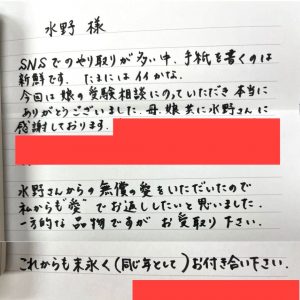 水野 様
SNSでのやり取りが多い中、手紙を書くのは
新鮮です。たまにはイイかな。
今回は娘の受験相談にのっていただき本当に
ありがとうございました。母、娘共に水野さんに
感謝しております。
水野さんからの無償の愛をいただいたので
私からも"愛"でお返ししたいと思いました。
一方的な品物ですがお受取り下さい。
これからも末永く(同じ年として)お付き合い下さい。